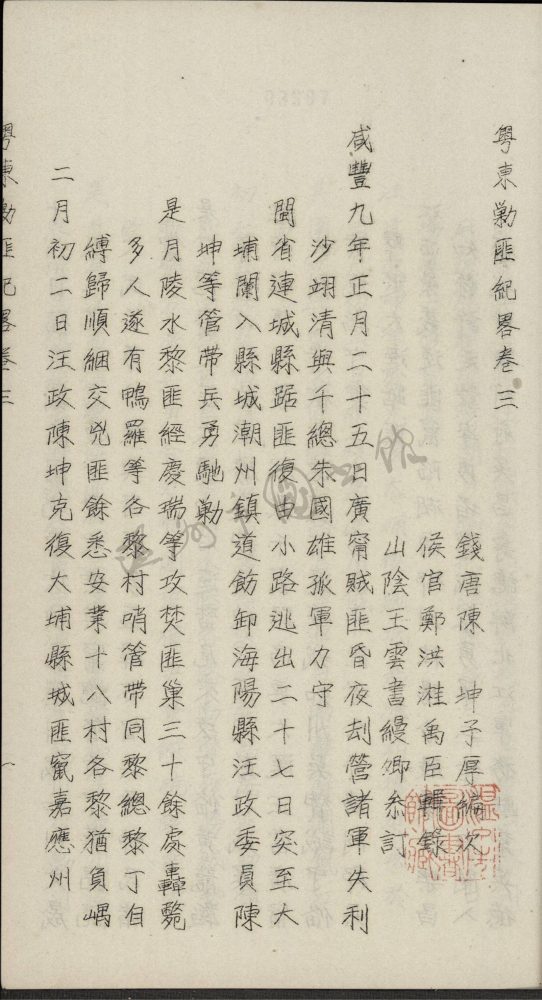 粤東勦匪紀畧卷三
錢唐陳坤子厚編次
侯官鄭洪溎禹臣輯錄
山陰王雲書縵卿叅訂
咸豐九年正月二十五日廣甯賊匪昏夜刦營諸軍失利
沙翊清與千總朱國雄孤軍力守
閩省連城縣踞匪復由小路逃出二十七日突至大
埔闌入縣城潮州鎮道飭卸海陽縣汪政委員陳
坤等管帶兵勇馳勦
是月陵水黎匪經慶瑞等攻焚匪巢三十餘處轟斃
多人遂有鴨羅等各黎村哨管帶同黎總黎丁自
縛歸順綑交兇匪餘悉安業十八村各黎猶負嵎
二月初二日汪政陳坤克復大埔縣城匪竄嘉應州
粤東勦匪紀畧卷三
一